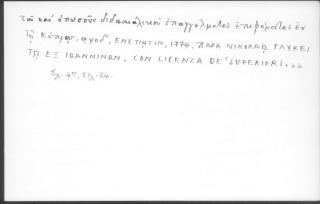 τοῦ καὶ ὁπωσοῦν διδασκαλικοῦ ἐπαγγέλματος ἐπιβάματος ἐν
τῇ Κύπρῳ. αψοδ´, ΕΝΕΤΙΗΣΙΝ, 1774, ΠΑΡΑ ΝΙΚΟΛΑΩ ΓΛΥΚΕΙ
ΤΩ ΕΞ ΙΩΑΝΝΙΝΩΝ. CON LICENZA DE' SUPERIORI.
Σχ. 4ον, Σελ. 24.